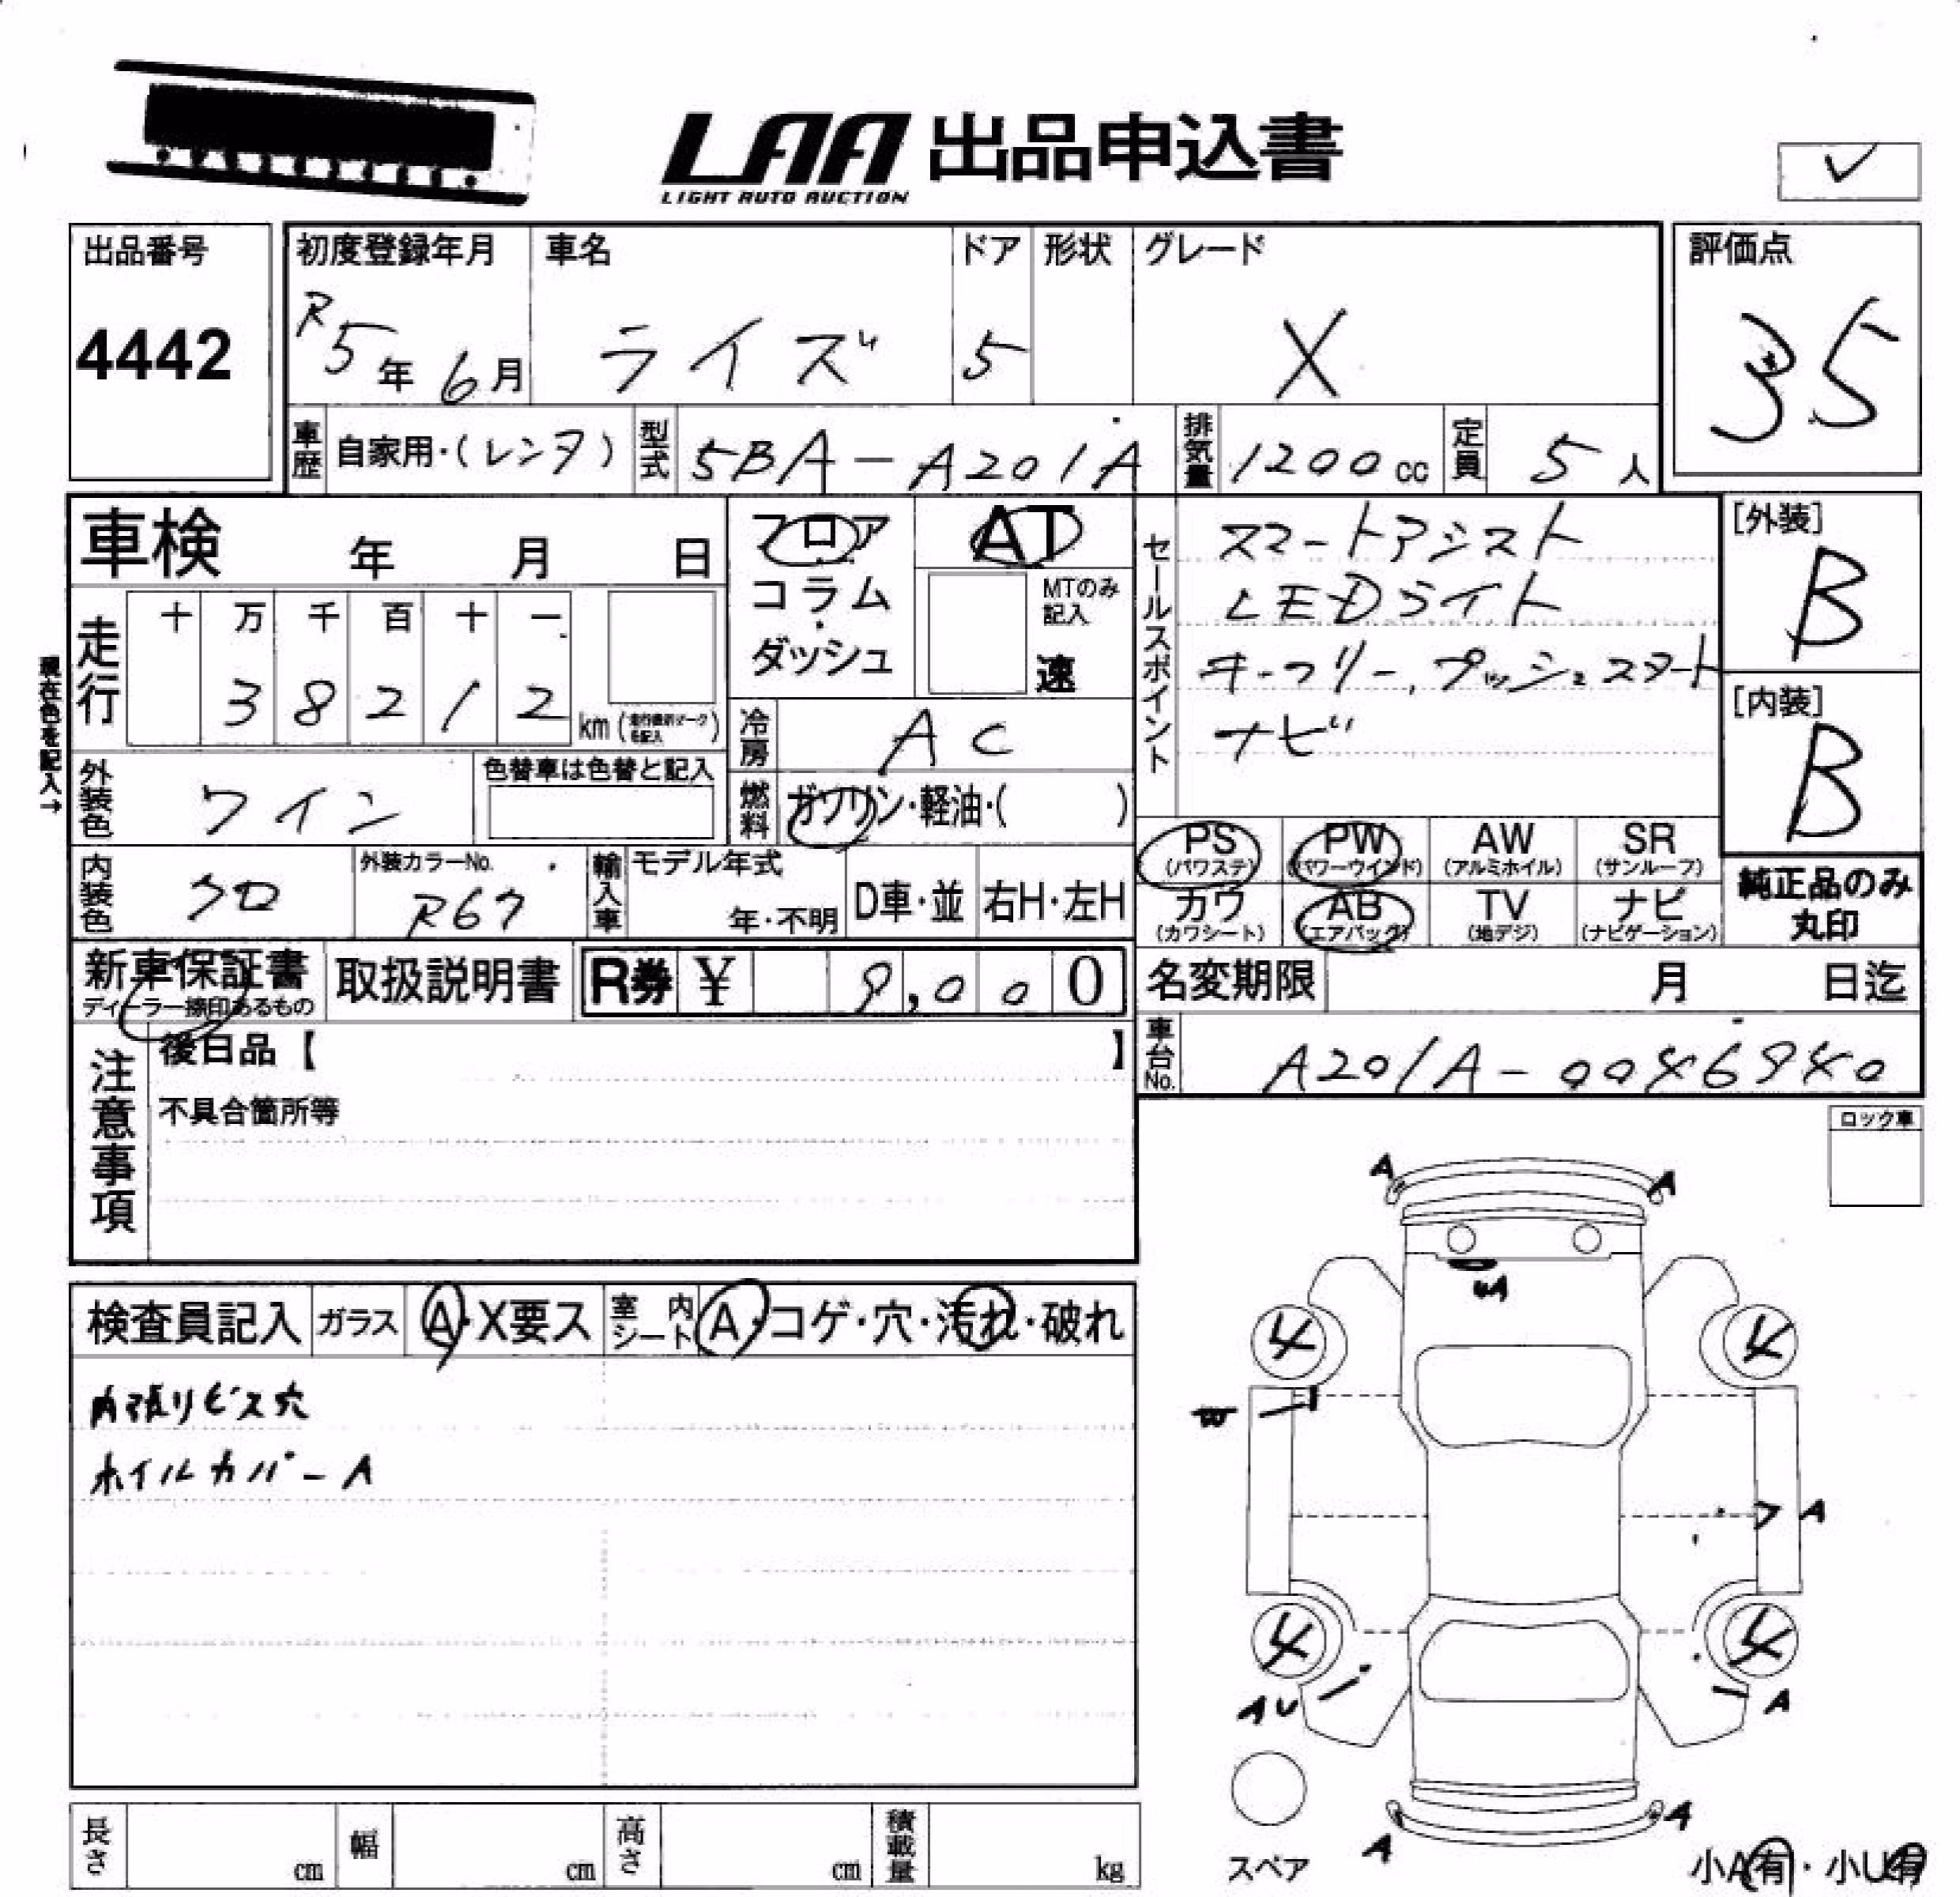 LAA 出品申込書
LIGHT AUTO AUCTION
✓
出品番号
4442
初度登録年月
R5年6月
車名
ライズ
ドア
5
形状
グレード
X
評価点
35
車歴
自家用・(レンタ)
型式
5BA-A201A
排気量
1200cc
定員
5人
車検 年 月 日
フロア
コラム
ダッシュ
AT
MTのみ記入
速
セールスポイント
スマートアシスト
LEDライト
キーフリー,プッシュスタート
ナビ
[外装]
B
[内装]
B
現在色を記入→
走行
十 万 千 百 十 一
3 8 2 1 2
km
冷房
AC
燃料
ガソリン・軽油・( )
外装色
ワイン
色替車は色替と記入
内装色
クロ
外装カラーNo.
R67
輸入車
モデル年式
年・不明
D車・並
右H・左H
PS
(パワステ)
PW
(パワーウインド)
AW
(アルミホイル)
SR
(サンルーフ)
カワ
(カワシート)
AB
(エアバック)
TV
(地デジ)
ナビ
(ナビゲーション)
純正品のみ
丸印
新車保証書
ディーラー捺印あるもの
取扱説明書
R券 ¥ 9,000
名変期限 月 日迄
車台No.
注意事項
後日品【 】
不具合箇所等
ロック車
検査員記入
ガラス
A・X要ス
室内シート
A・コゲ・穴・汚れ・破れ
内張りビス穴
ホイルカバーA
A
A
UA
4
4
W
A
4
4
AU
A
A
A
スペア
小A有・小U有
長さ cm
幅 cm
高さ cm
積載量 kg